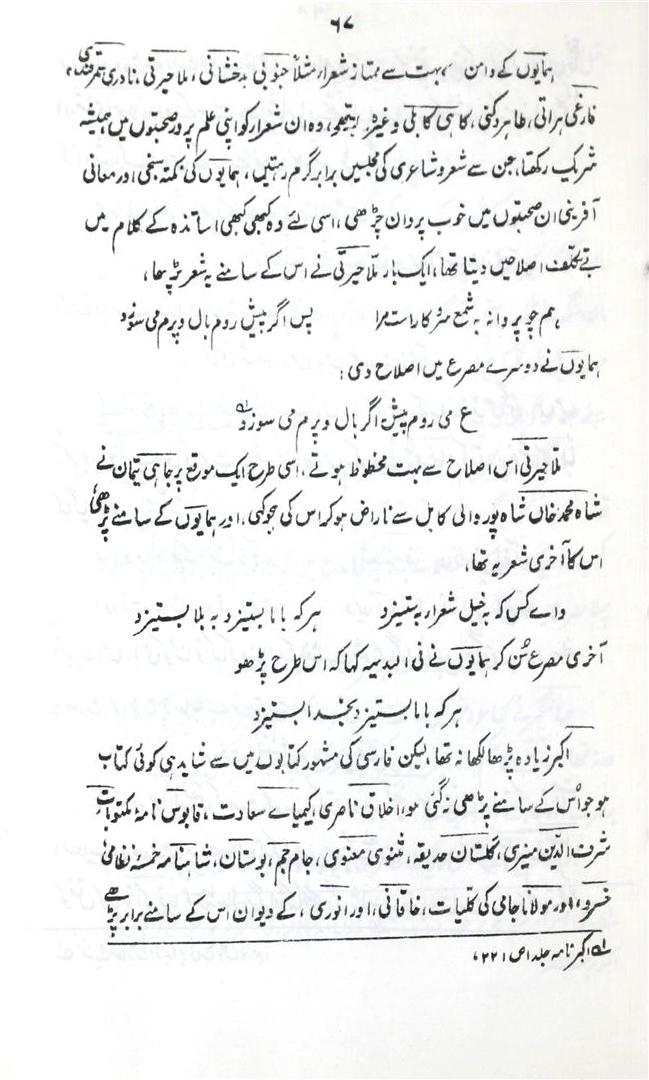 ۶۷
ہمایوں کے دامن میں بہت سے ممتاز شعرار مثلاً جنوبی بدخشانی، ملا حیرتی، نادری سمرقندی،
فارغی ہراتی، طاہر دکنی، کاہی کابلی وغیرہ
شریک رکھتا، جن سے شعر و شاعری کی مجلسیں برابر گرم رہتیں، ہمایوں کی نکتہ سنجی اور معانی
آفرینی ان صحبتوں میں خوب پروان چڑھی، اسی لئے وہ کبھی کبھی اساتذہ کے کلام میں
بے تکلف اصلاحیں دیتا تھا، ایک بار ملا حیرتی نے اس کے سامنے یہ شعر پڑھا،
ہم چو پروانہ بہ شمع سر و کار است مرا پس اگر پیش روم بال و پرم می سوزد
ہمایوں نے دوسرے مصرع میں اصلاح دی:
ع می روم پیش اگر بال و پرم می سوزد
ملا حیرتی اس اصلاح سے بہت محظوظ ہوئے، اسی طرح ایک موقع پر جاہی یتمان نے
شاہ محمد خاں شاہ پور والی کابل سے ناراض ہو کر اس کی ہجو کہی، اور ہمایوں کے سامنے پڑھی
اس کا آخری شعر یہ تھا،
واے کس کہ بہ خیل شعرار بہ ستیزد ہر کہ با ما بستیزد بہ بلا بستیزد
آخری مصرع سُن کر ہمایوں نے فی البدیہ کہا کہ اس طرح پڑھو
ہر کہ با ما بستیزد بخدا بستیزد
اکبر زیادہ پڑھا لکھا نہ تھا، لیکن فارسی کی مشہور کتابوں میں سے شاید ہی کوئی کتاب
ہو جو اُس کے سامنے پڑھی نہ گئی ہو، اخلاق ناصری، کیمیاے سعادت، قابوس نامہ، مکتوبات
شرف الدین منیری، گلستان، حدیقہ، مثنوی معنوی، جام جم، بوستان، شاہنامہ، خمسۂ نظامی
خسرو اور مولانا جامی کی کلیات، خاقانی، اور انوری، کے دیوان اس کے سامنے برابر پڑھے
لہ اکبر نامہ جلد ا ص ۲۲۱،